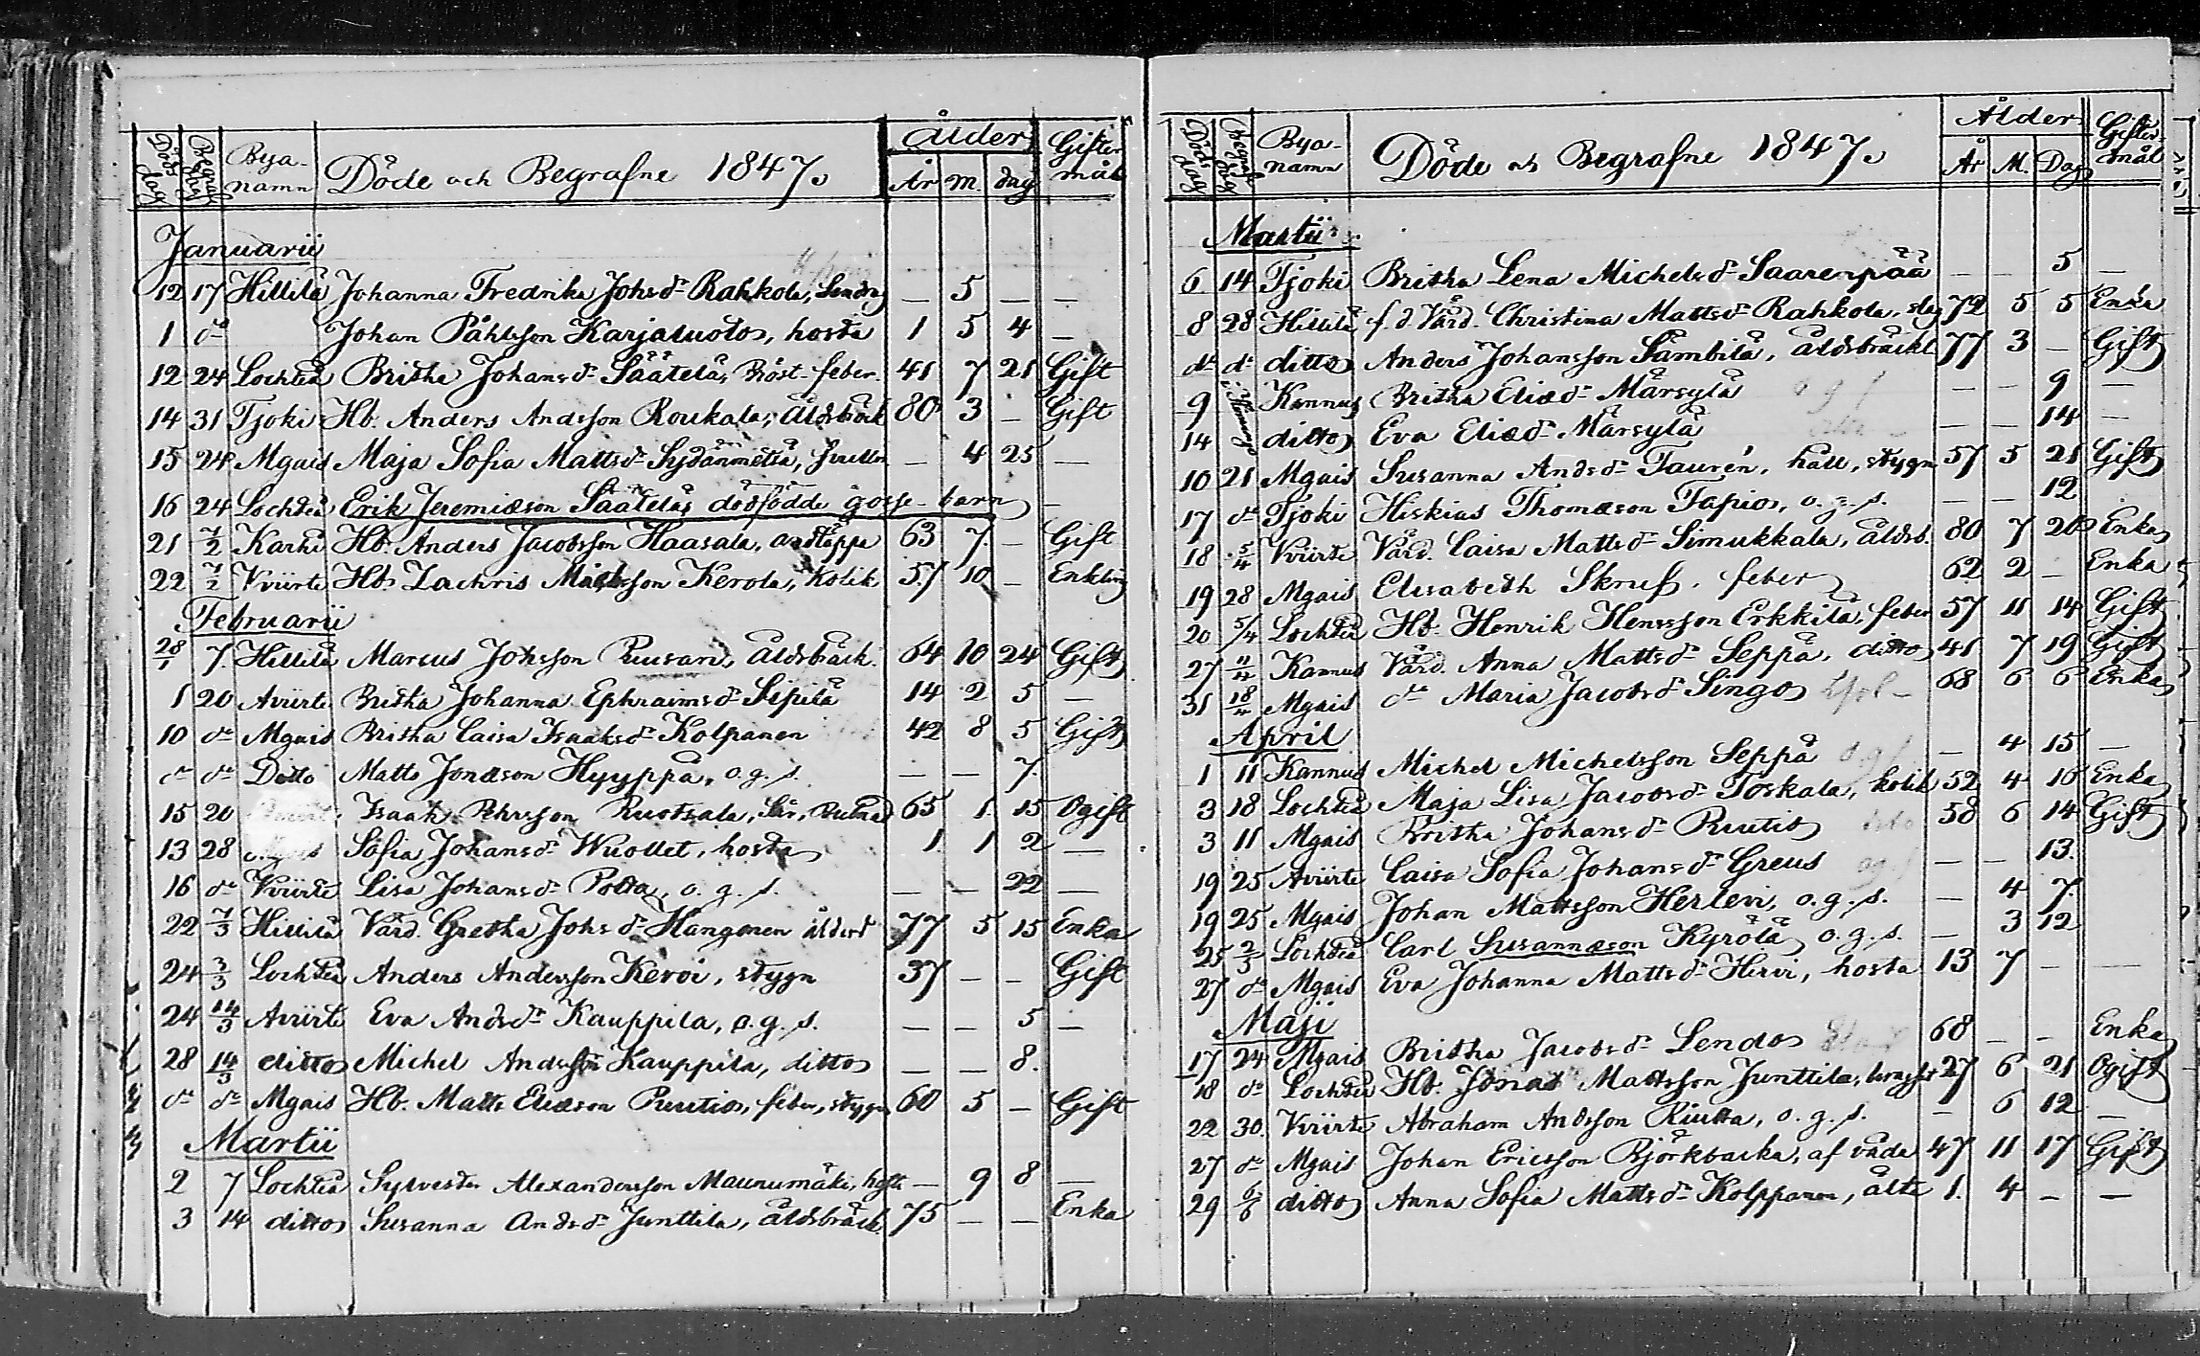 Döds dag Begrafn. dag Bya-namn Döde och Begrafne 1847. Ålder År m. dag Giftermål
Januarii
12 17 Hillilä Johanna Fredrika Johsdr Rahkola, — 5 — —
1 do Johan Påhlsson Karjaluoto, hosta 1 5 4 —
12 24 Lochteå Britha Johansdr Säätelä, Bröst-feber. 41 7 21 Gift
14 31 Tjoki Hb. Anders Andsson Roukala, åldsbräck 80 3 — Gift
15 24 Mgais Maja Sofia Mattsdr Sydänmetsä, — 4 25 —
16 24 Lochteå Erik Jeremiæson Säätelä, dödfödde gosse-barn —
21 7/2 Karhi Hb. Anders Jacobsson Haasala, andtäppa 63 7 — Gift
22 7/2 Yviirte Hb. Zachris Mattsson Kerola, kolik 57 10 — Enkling
Februarii
28/1 7. Hillilä Marcus Johsson Ruusari, åldsbräck. 64 10 24 Gift
1 20 Aviirte Britha Johanna Ephraimsdr Sipilä 14 2 5 —
10 do Mgais Britha Caisa Isaaksdr Kolpanen 42 8 5 Gift
do do Ditto Matts Jonæson Hyyppä, o.g.s. — — 7.
15 20 Isaak Pehrsson Ruotsala, 65 1. 15 Ogift
13 28 Mgais Sofia Johansdr Wuollet, hosta 1 1 2 —
16 do Yviirte Lisa Johansdr Polta, o.g.s. — — 22 —
22 7/3 Hillilä Värd. Gretha Johsdr Hangonen ålderd 77 5 15 Enka
24 7/3 Lochteå Anders Andersson Keroi, stygn 37 — — Gift
24 14/3 Aviirte Eva Andsdr Kauppila, o.g.s. — — 5 —
28 14/3 ditto Michel Andsson Kauppila, ditto — — 8.
do do Mgais Hb. Matts Eliæson Ruutio, feber, stygn 60 5 — Gift
Martii
2 7 Lochteå Sylvester Alexandersson Maunumäki, — 9 8 —
3 14 ditto Susanna Andsdr Junttila, åldsbräck. 75 — — Enka
Döds dag Begrafn. dag Bya-namn Döde och Begrafne 1847. Ålder År M. Dag Giftermål
Martii
6 14 Tjoki Britha Lena Michelsdr Saarenpää — — 5 —
8 28 Hillilä f.d. Värd. Christina Mattsdr Rahkola, slag 72 5 5 Enka
do do ditto Anders Johansson Sämbilä, åldsbräckl 77 3 — Gift
9 Kannus Britha Eliædr Märsylä o g s — — 9 —
14 ditto Eva Eliædr Märsylä — — 14 —
10 21 Mgais Susanna Andsdr Taurén, håll, stygn 57 5 21 Gift
17 do Tjoki Hiskias Thomæson Tapio, o.g.s. — — 12
18 5/4 Yviirte Värd. Caisa Mattsdr Simukkala, åldsb. 80 7 20 Enka
19 28 Mgais Elisabeth Skruf, feber 62 2 — Enka
20 5/4 Lochteå Hb. Henrik Hensson Erkkilä, feber 57 11 14 Gift
27 11/4 Kannus Värd. Anna Mattsdr Seppä, ditto 41 7 19 Gift
31 18/4 Mgais do Maria Jacobsdr Singo 68 6 6 Enka
April
1 11 Kannus Michel Michelsson Seppä o g s — 4 15 —
3 18 Lochteå Maja Lisa Jacobsdr Toskala, kolik 52 4 10 Enka
3 11 Mgais Britha Johansdr Ruutio 58 6 14 Gift
19 25 Aviirte Caisa Sofia Johansdr Greus og s — — 13.
19 25 Mgais Johan Mattsson Herlevi, o.g.s. — 4 7.
25 2/5 Lochteå Carl Susannæson Kyrölä, o.g.s. — 3 12
27 do Mgais Eva Johanna Mattsdr Hirvi, hosta 13 7 — —
Maji
17 24 Mgais Britha Jacobsdr Lendo 68 — — Enka
18 do Lochteå Hb. Jonas Mattsson Junttila, 27 6 21 Ogift
22 30. Yviirte Abraham Andsson Riutta, o.g.s. — 6 12 —
27 do Mgais Johan Ericsson Björkbacka, af våda 47 11 17 Gift
29 6/6 ditto Anna Sofia Mattsdr Kolpparen, älta 1. 4 — —